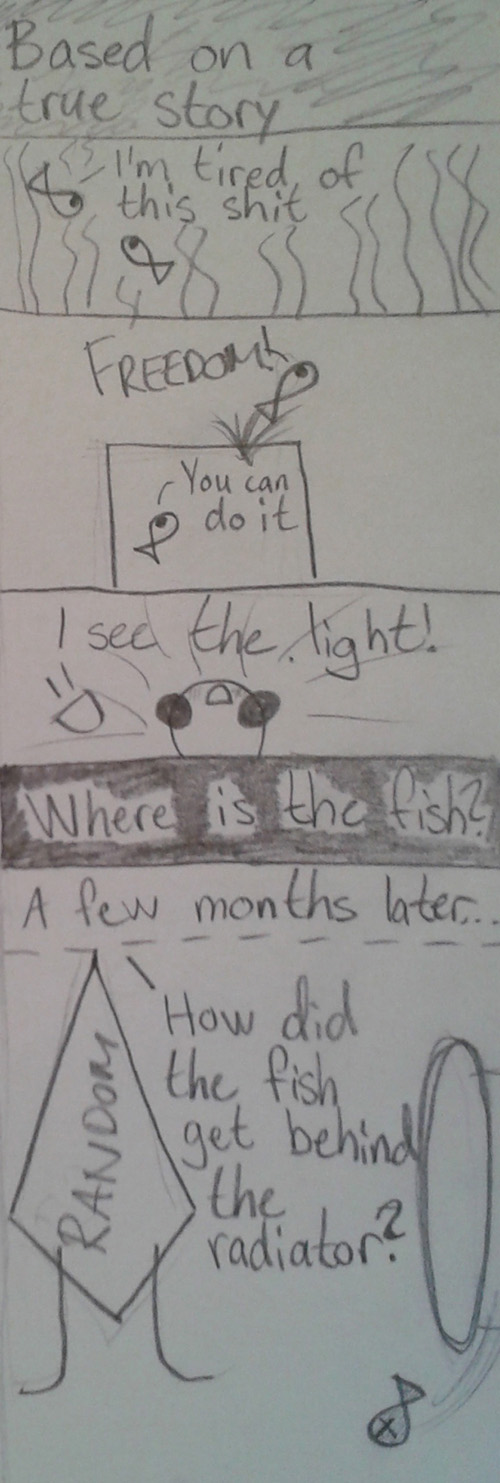 Based on a
true story
I'm tired of
this shit
FREEDOM!
You can
do it
I see the light!
Where is the fish?
A few months later...
RANDOM
How did
the fish
get behind
the
radiator?